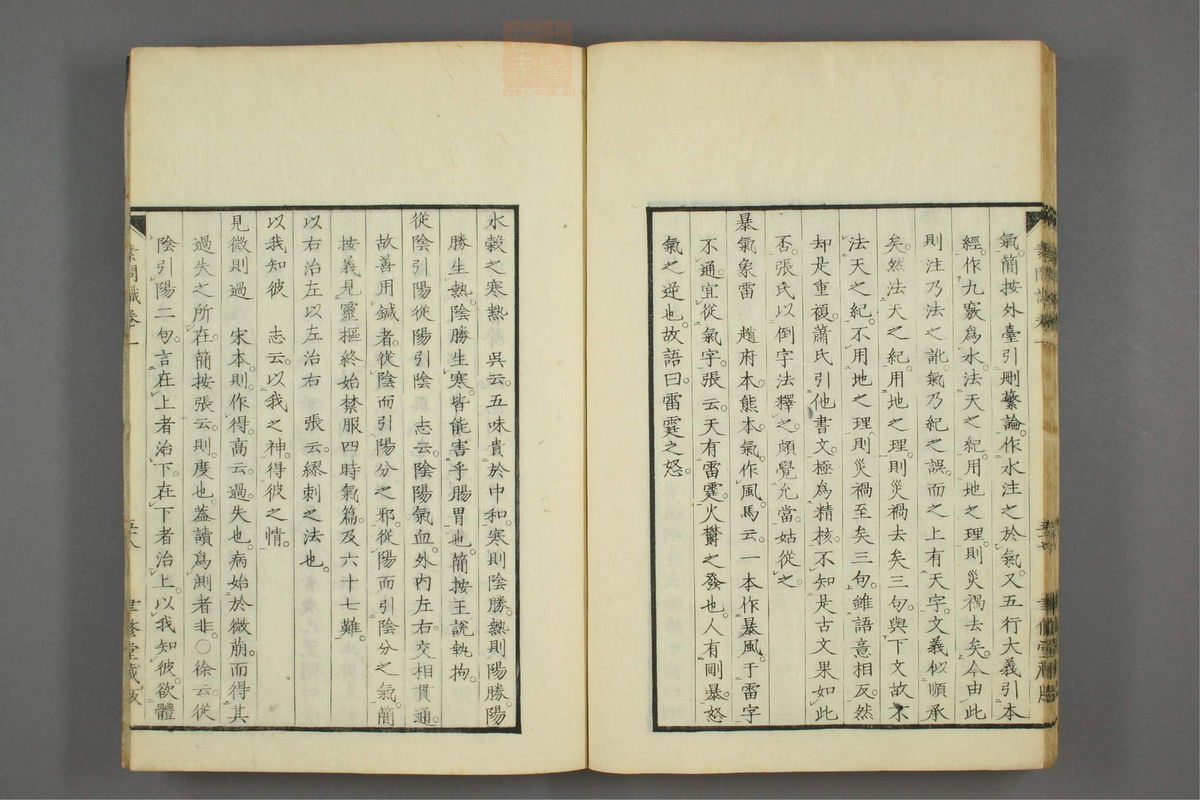 氣。簡按外臺引刪繁論。作水注之於氣。又五行大義引本
經。作九竅爲水。法天之紀。用地之理。則災禍去矣。今由此
則注乃法之訛。氣乃紀之誤。而之上有天字。文義似順承
矣。然法天之紀。用地之理。則災禍去矣三句。與下文故不
法天之紀。不用地之理。則災禍至矣三句。雖語意相反。然
却是重複。蕭氏引他書文。極爲精核。不知是古文果如此
否。張氏以倒字法釋之。頗覺允當。姑從之。
暴氣象雷 趙府本熊本。氣作風。馬云。一本作暴風。于雷字
不通。宜從氣字。張云。天有雷霆。火鬱之發也。人有剛暴。怒
氣之逆也。故語曰。雷霆之怒。
素問識卷一
水穀之寒熱 吳云。五味貴於中和。寒則陰勝。熱則陽勝。陽
勝生熱。陰勝生寒。皆能害乎腸胃也。簡按王說執拘。
從陰引陽從陽引陰 志云。陰陽氣血。外內左右。交相貫通。
故善用鍼者。從陰而引陽分之邪。從陽而引陰分之氣。簡
按義見靈樞終始禁服四時氣篇。及六十七難。
以右治左以左治右 張云。繆刺之法也。
以我知彼 志云。以我之神。得彼之情。
見微則過 宋本。則。作得。高云。過。失也。病始於微萠。而得其
過失之所在。簡按張云。則。度也。蓋讀爲測者非。○徐云。從
陰引陽二句。言在上者治下。在下者治上。以我知彼。欲體
素問識卷一
五十八
聿修堂藏板